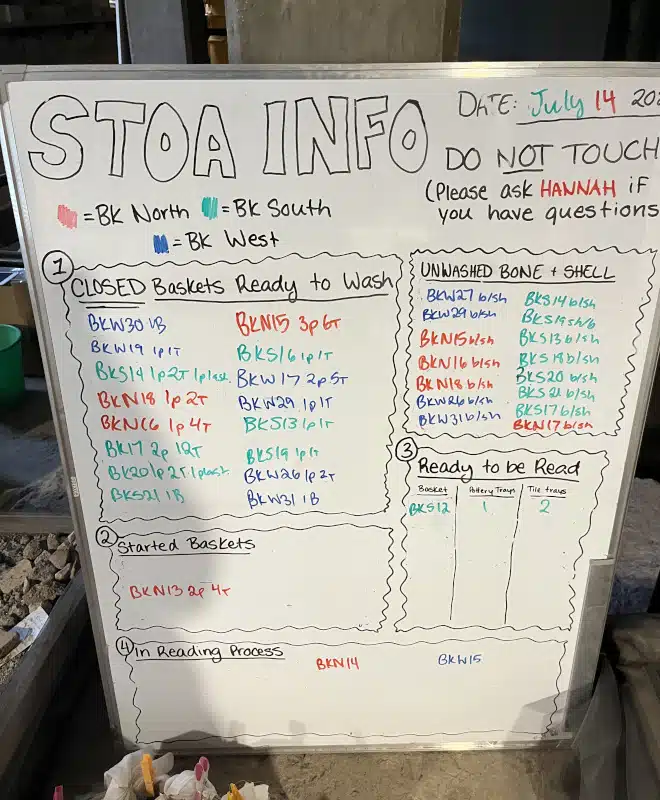 STOA INFO
DATE: July 14 202
DO NOT TOUCH
(Please ask HANNAH if
you have questions
= BK North = BK South
= BK West
1
CLOSED Baskets Ready to Wash
BKW30 1B
BKW19 1p1T
BKS14 1p2T 1plast.
BKN18 1p 2T
BKN16 1p 4T
BK17 2p 12T
BK20 1p 2T 1plast
BKS21 1B
BKN15 3p 6T
BKS16 1p1T
BKW17 2p5T
BKW29 1p1T
BKS13 1p1T
BKS19 1p1T
BKW26 1p2T
BKW31 1B
UNWASHED BONE + SHELL
BKW27 b/sh
BKW29 b/sh
BKN15 b/sh
BKN16 b/sh
BKN18 b/sh
BKW26 b/sh
BKW31 b/sh
BKS14 b/sh
BKS19 sh/b
BKS13 b/sh
BKS19 b/sh
BKS20 b/sh
BKS21 b/sh
BKS17 b/sh
BKN17 b/sh
2
Started Baskets
BKN13 2p 4T
3
Ready to be Read
Basket Pottery Trays Tile trays
BKS12 1 2
4
In Reading Process
BKN14 BKW15